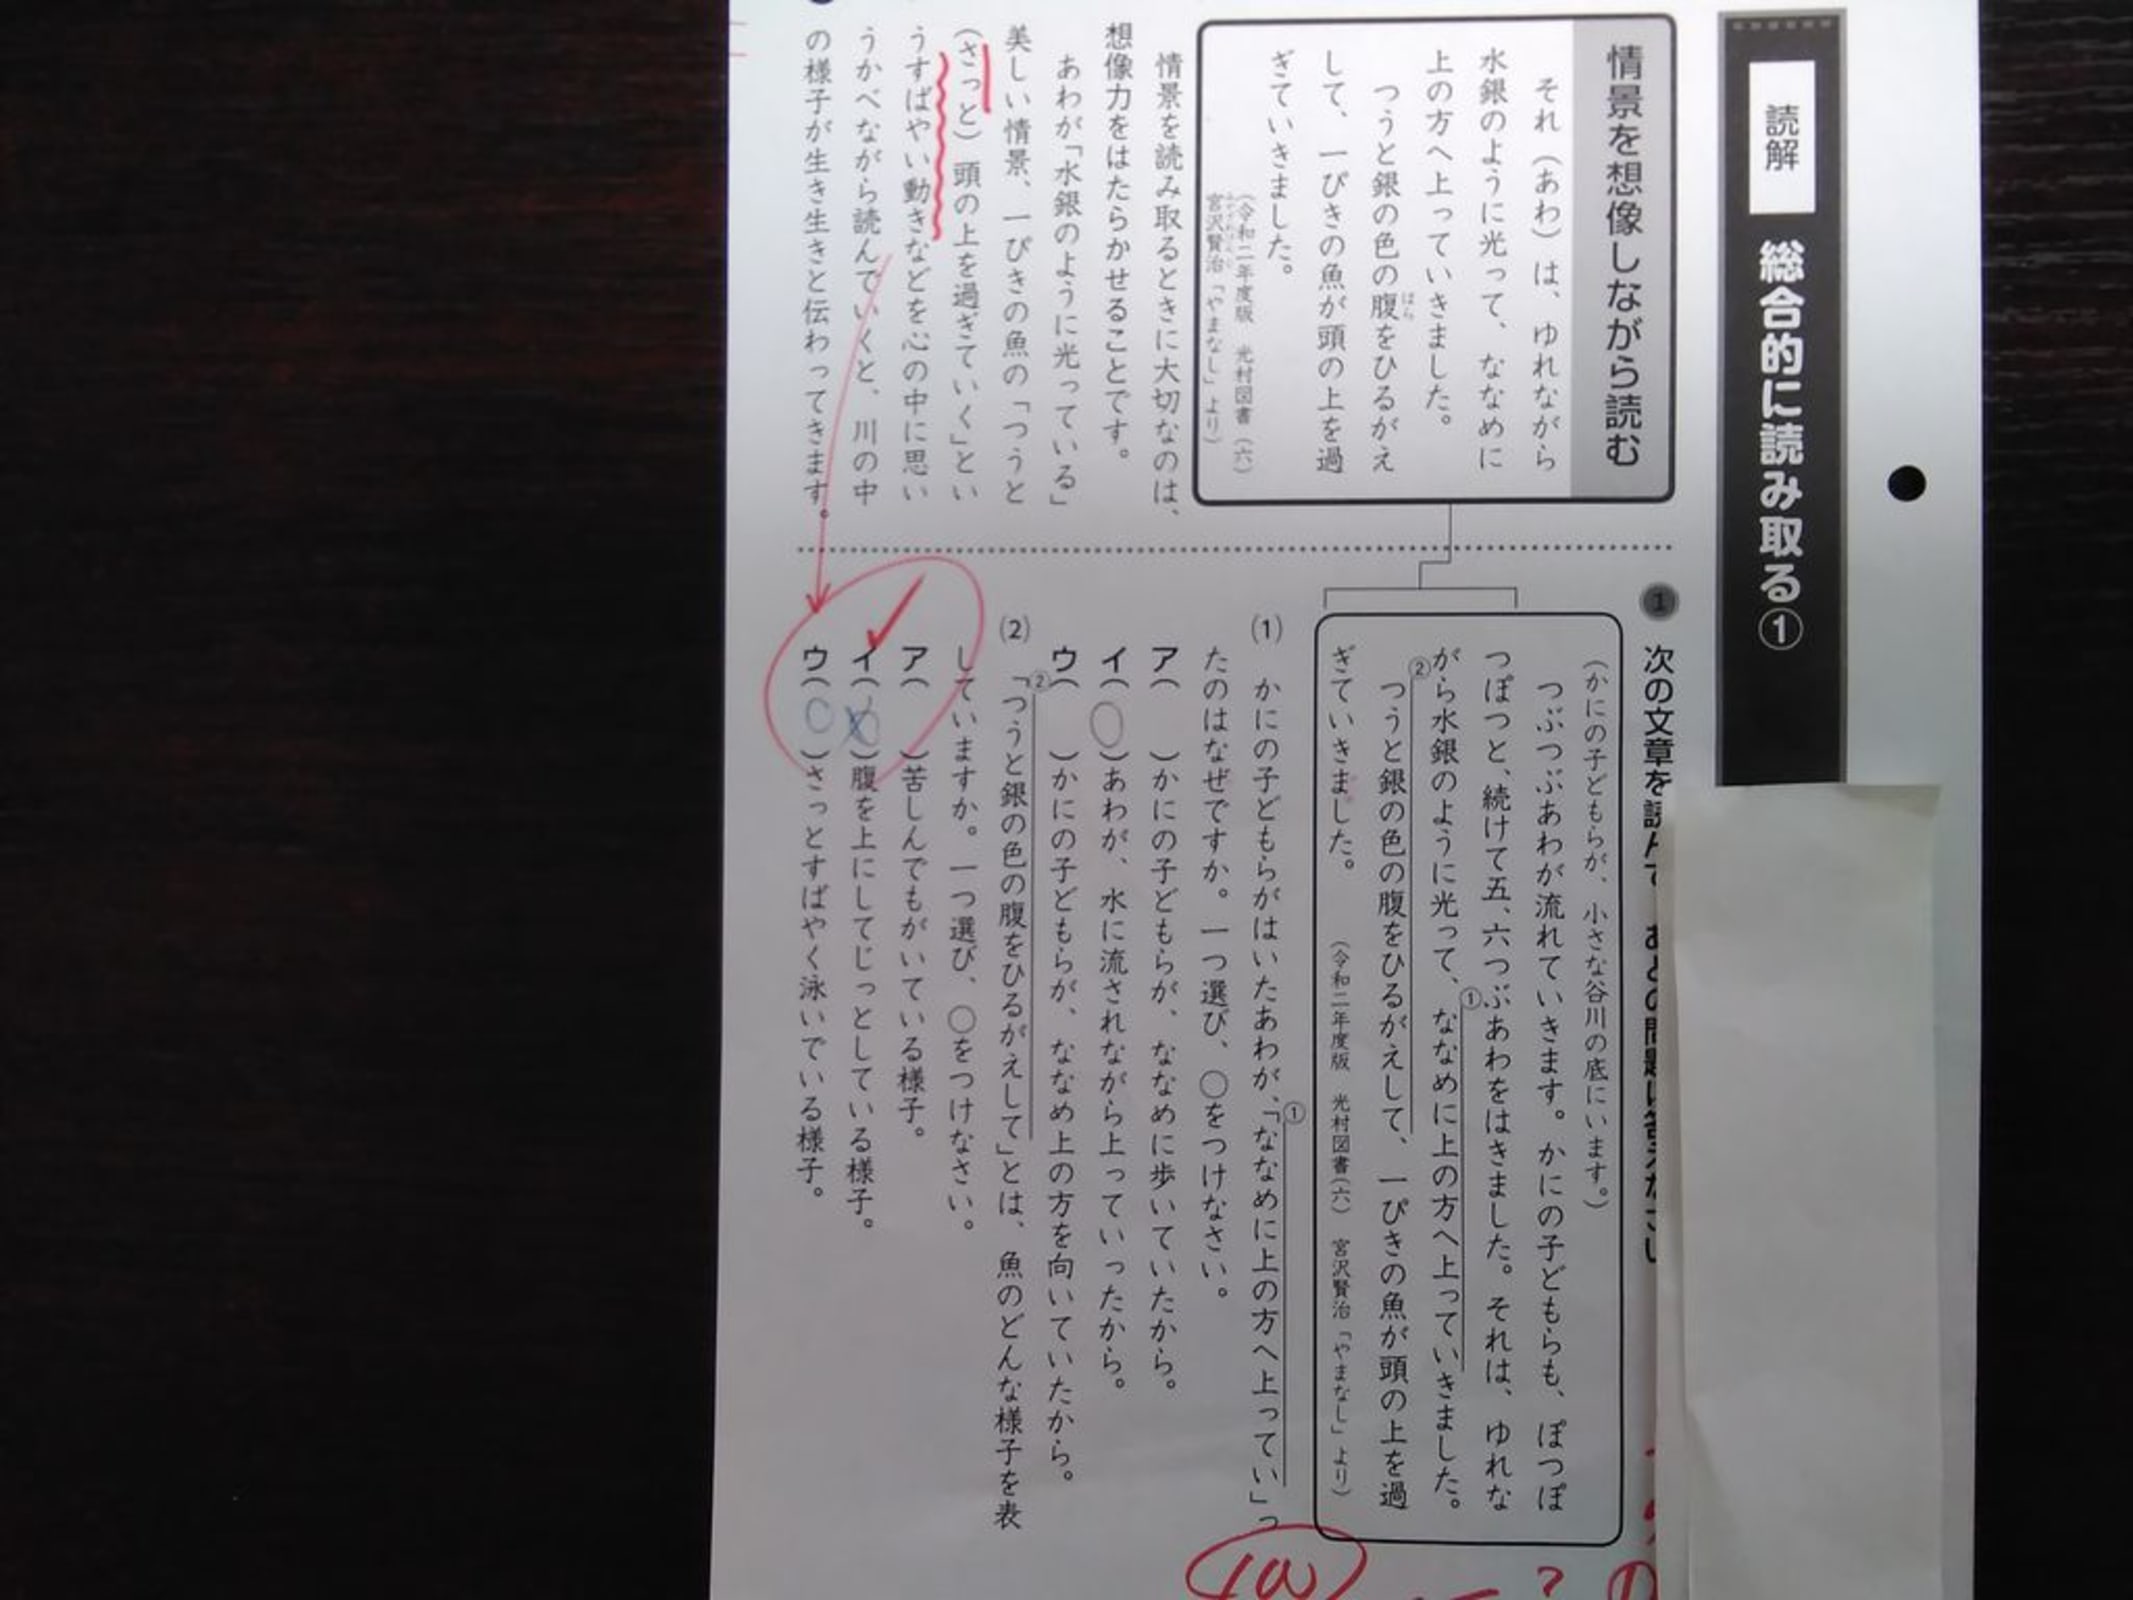 読解
総合的に読み取る①
情景を想像しながら読む
それ（あわ）は、ゆれながら
水銀のように光って、ななめに
上の方へ上っていきました。
つうと銀の色の腹をひるがえ
はら
して、一ぴきの魚が頭の上を過
ぎていきました。
（令和二年度版　光村図書（六）
宮沢賢治「やまなし」より）
情景を読み取るときに大切なのは、
想像力をはたらかせることです。
あわが「水銀のように光っている」
美しい情景、一ぴきの魚の「つうと
（さっと）頭の上を過ぎていく」とい
うすばやい動きなどを心の中に思い
うかべながら読んでいくと、川の中
の様子が生き生きと伝わってきます。
1
次の文章を読んで
（かにの子どもらが、小さな谷川の底にいます。）
つぶつぶあわが流れていきます。かにの子どもらも、ぽつぽ
つぽつと、続けて五、六つぶあわをはきました。それは、ゆれな
がら水銀のように光って、①ななめに上の方へ上っていきました。
②つうと銀の色の腹をひるがえして、一ぴきの魚が頭の上を過
ぎていきました。
（令和二年度版　光村図書（六）　宮沢賢治「やまなし」より）
(1)　かにの子どもらがはいたあわが、①「ななめに上の方へ上ってい」っ
たのはなぜですか。一つ選び、○をつけなさい。
ア（　）かにの子どもらが、ななめに歩いていたから。
イ（○）あわが、水に流されながら上っていったから。
ウ（　）かにの子どもらが、ななめ上の方を向いていたから。
(2)　②「つうと銀の色の腹をひるがえして」とは、魚のどんな様子を表
していますか。一つ選び、○をつけなさい。
ア（　）苦しんでもがいている様子。
イ（　）腹を上にしてじっとしている様子。
ウ（○）さっとすばやく泳いでいる様子。